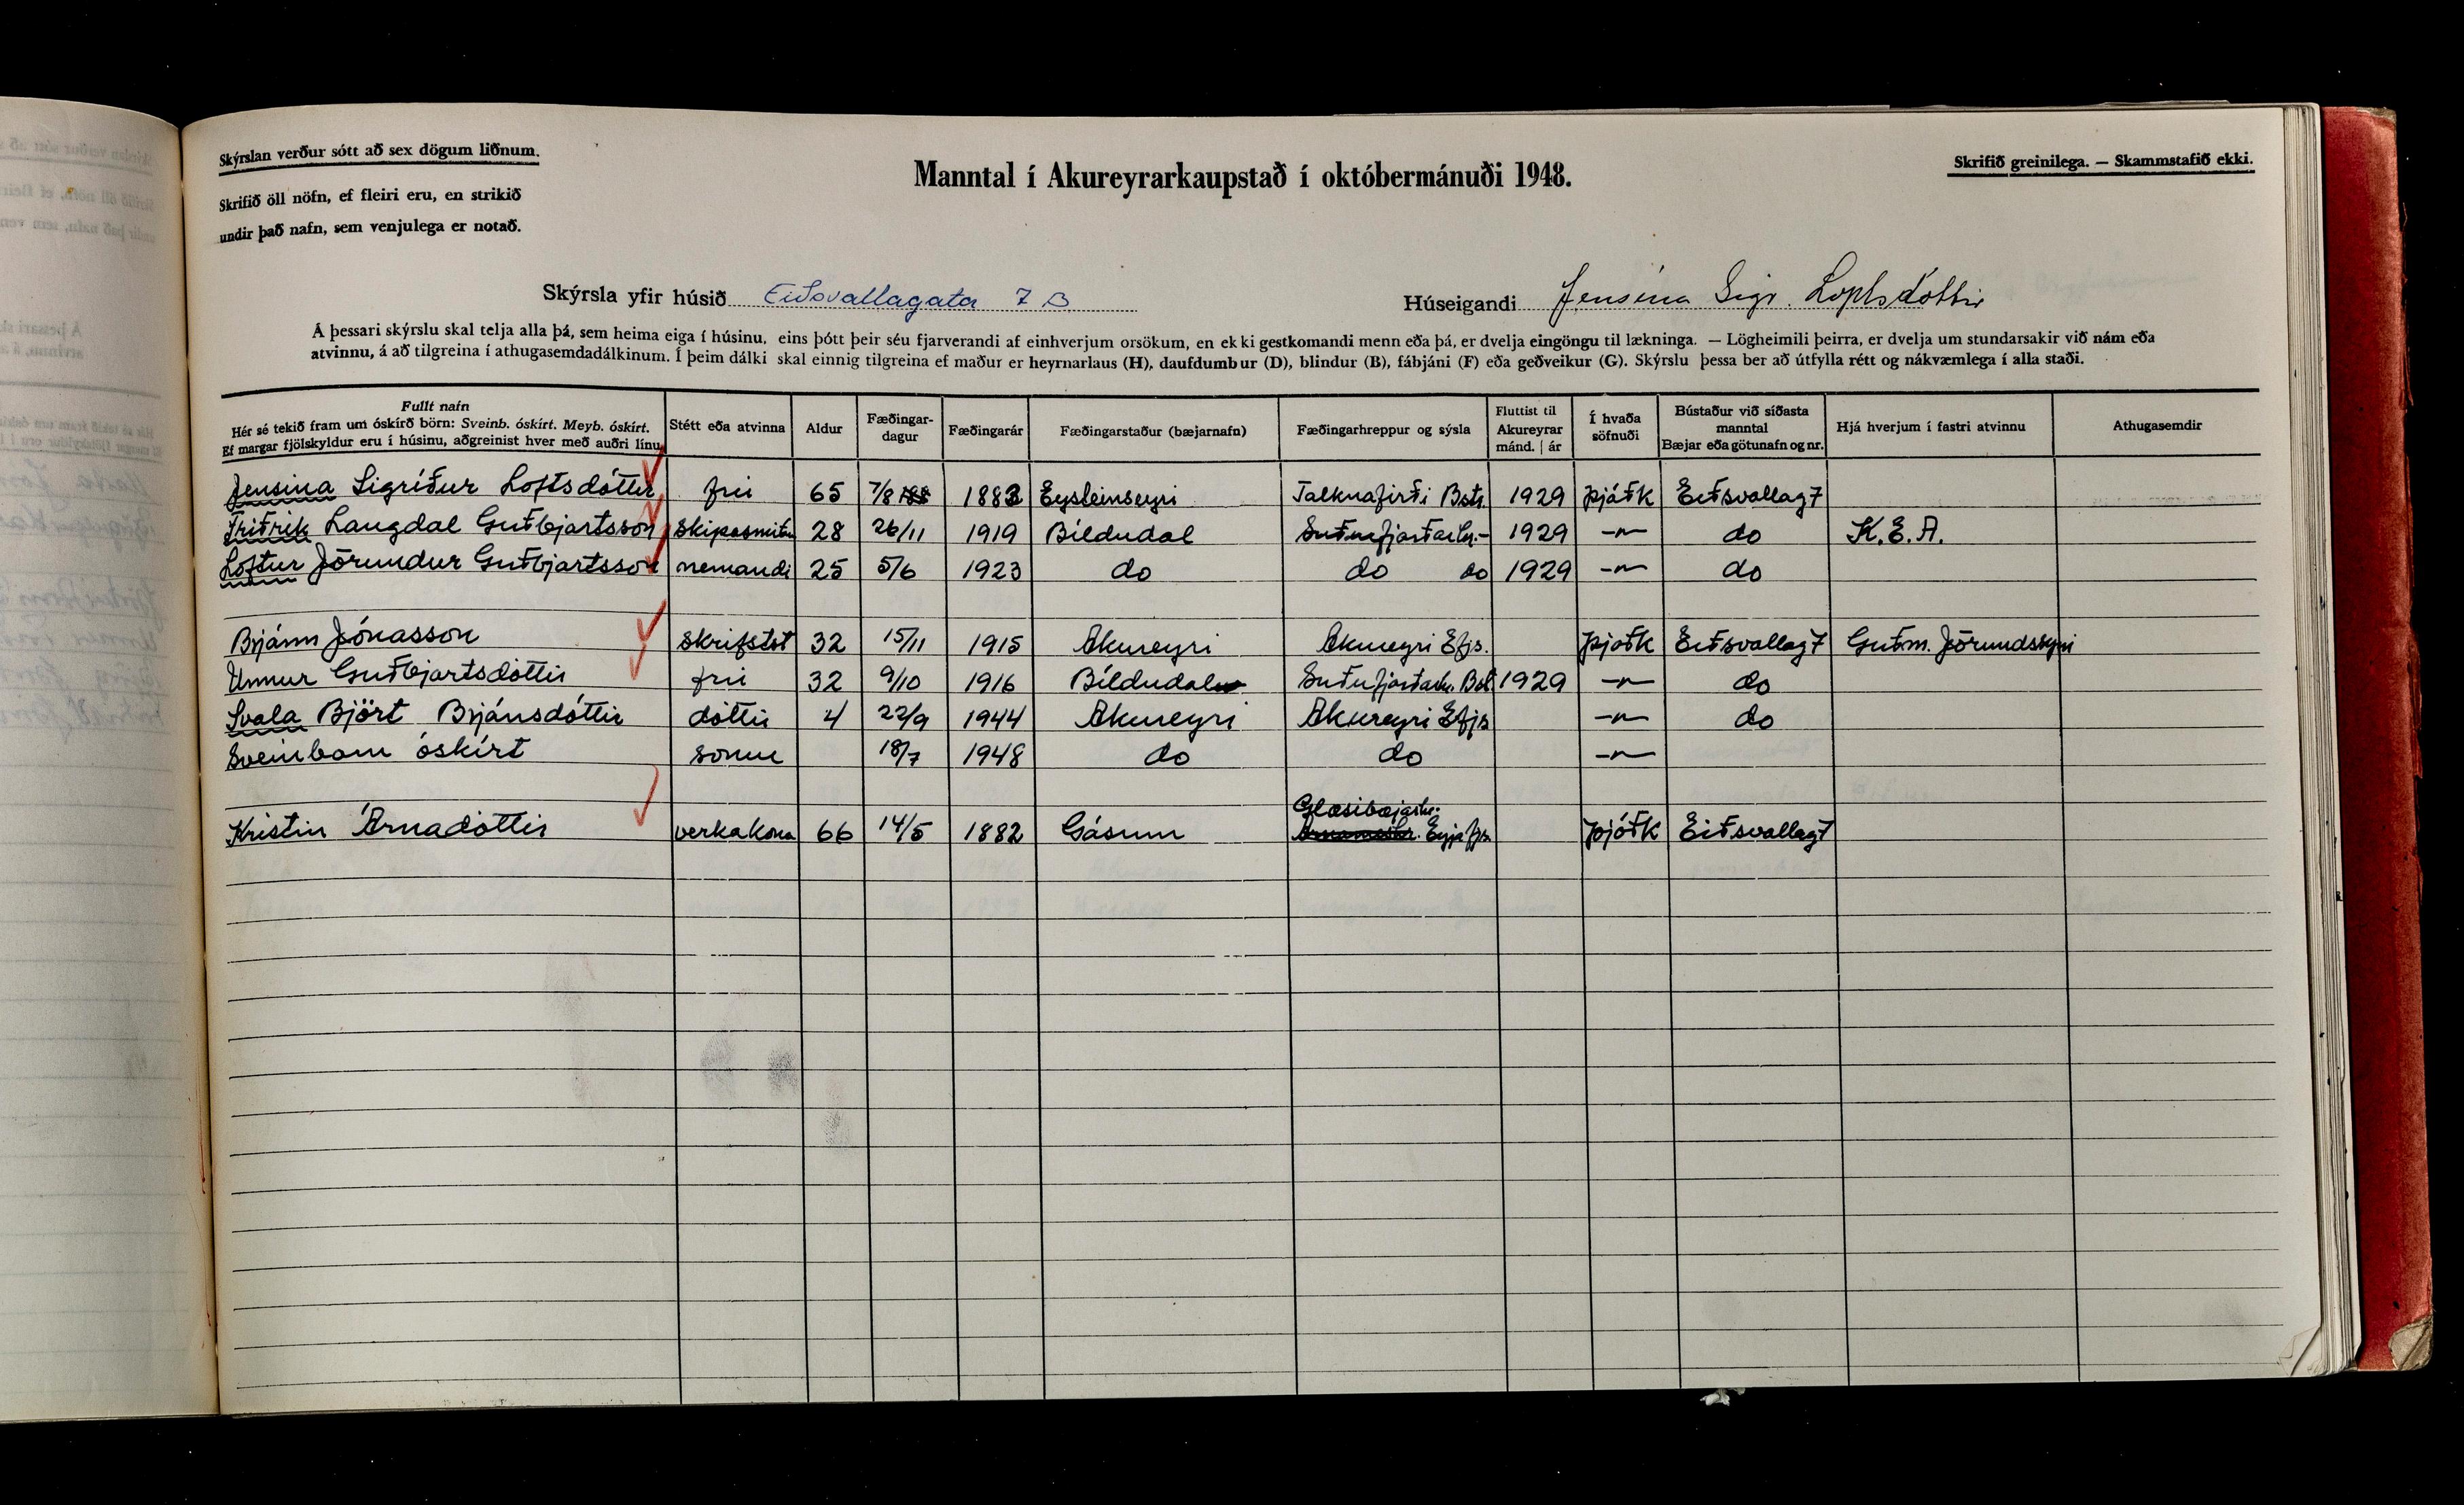 Skýrslan verður sótt að sex dögum liðnum.
Skrifið öll nöfn, ef fleiri eru, en strikið
undir það nafn, sem venjulega er notað.
Manntal í Akureyrarkaupstað í októbermánuði 1948.
Skrifið greinilega. — Skammstafið ekki.
Skýrsla yfir húsið Eiðsvallagata 7 B
Húseigandi Jensína Sigr. Loptsdóttir
Á þessari skýrslu skal telja alla þá, sem heima eiga í húsinu, eins þótt þeir séu fjarverandi af einhverjum orsökum, en ekki gestkomandi menn eða þá, er dvelja eingöngu til lækninga. — Lögheimili þeirra, er dvelja um stundarsakir við nám eða
atvinnu, á að tilgreina í athugasemdadálkinum. Í þeim dálki skal einnig tilgreina ef maður er heyrnarlaus (H), daufdumbur (D), blindur (B), fábjáni (F) eða geðveikur (G). Skýrslu þessa ber að útfylla rétt og nákvæmlega í alla staði.
Fullt nafn
Hér sé tekið fram um óskírð börn: Sveinb. óskírt. Meyb. óskírt.
Ef margar fjölskyldur eru í húsinu, aðgreinist hver með auðri línu.
Stétt eða atvinna
Aldur
Fæðingar-
dagur
Fæðingarár
Fæðingarstaður (bæjarnafn)
Fæðingarhreppur og sýsla
Fluttist til
Akureyrar
mánd. | ár
Í hvaða
söfnuði
Bústaður við síðasta
manntal
Bæjar eða götunafn og nr.
Hjá hverjum í fastri atvinnu
Athugasemdir
Jensina Sigríður Loftsdóttir frú 65 7/8 1883 Eysteinseyri Talknafirði Bstr. 1929 þjóðk Eiðsvallag 7
Friðrik Langdal Guðbjartsson skipasmiður 28 26/11 1919 Bíldudal Suðurfjarðarhr. - 1929 -"- do K.E.A.
Loftur Jörundur Guðbjartsson nemandi 25 5/6 1923 do do do 1929 -"- do
Brjánn Jónasson skrifstst 32 15/11 1915 Akureyri Akureyri Efjs. þjóðk Eiðsvallag 7 Guðm. Jörundssyni
Unnur Guðbjartsdóttir frú 32 9/10 1916 Bíldudal Suðurfjarðarhr. Bst. 1929 -"- do
Svala Björt Brjánsdóttir dóttir 4 22/9 1944 Akureyri Akureyri Efjs -"- do
Sveinbarn óskírt sonur 18/7 1948 do do -"-
Glæsibæjarhr.
Kristin Árnadóttir verkakona 66 14/5 1882 Gásum Eyjafjs. þjóðk Eiðsvallag 7